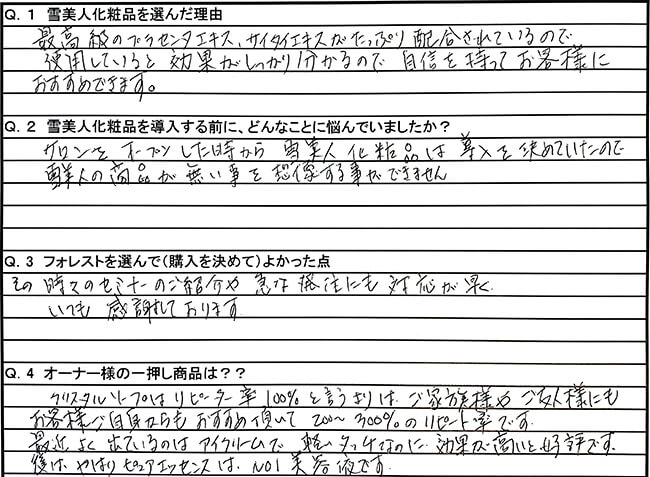 Q.1 雪美人化粧品を選んだ理由
最高級のプラセンタエキス、サイタイエキスがたっぷり配合されているので
使用していると効果がしっかり分かるので自信を持ってお客様に
おすすめできます。
Q.2 雪美人化粧品を導入する前に、どんなことに悩んでいましたか？
サロンをオープンした時から雪美人化粧品は導入を決めていたので
雪美人の商品が無い事を想像する事ができません
Q.3 フォレストを選んで(購入を決めて)よかった点
その時々のセミナーのご紹介や急な発注にも対応が早く
いつも感謝しております
Q.4 オーナー様の一押し商品は？？
クリスタルソープはリピーター率100%と言うよりは、ご家族様やご友人様にも
お客様ご自身からもおすすめ頂いて200〜300%のリピート率です。
最近よく出ているのはアイクリームで軽いタッチなのに効果が高いと好評です。
後は、やはりピュアエッセンスは、NO1美容液です。